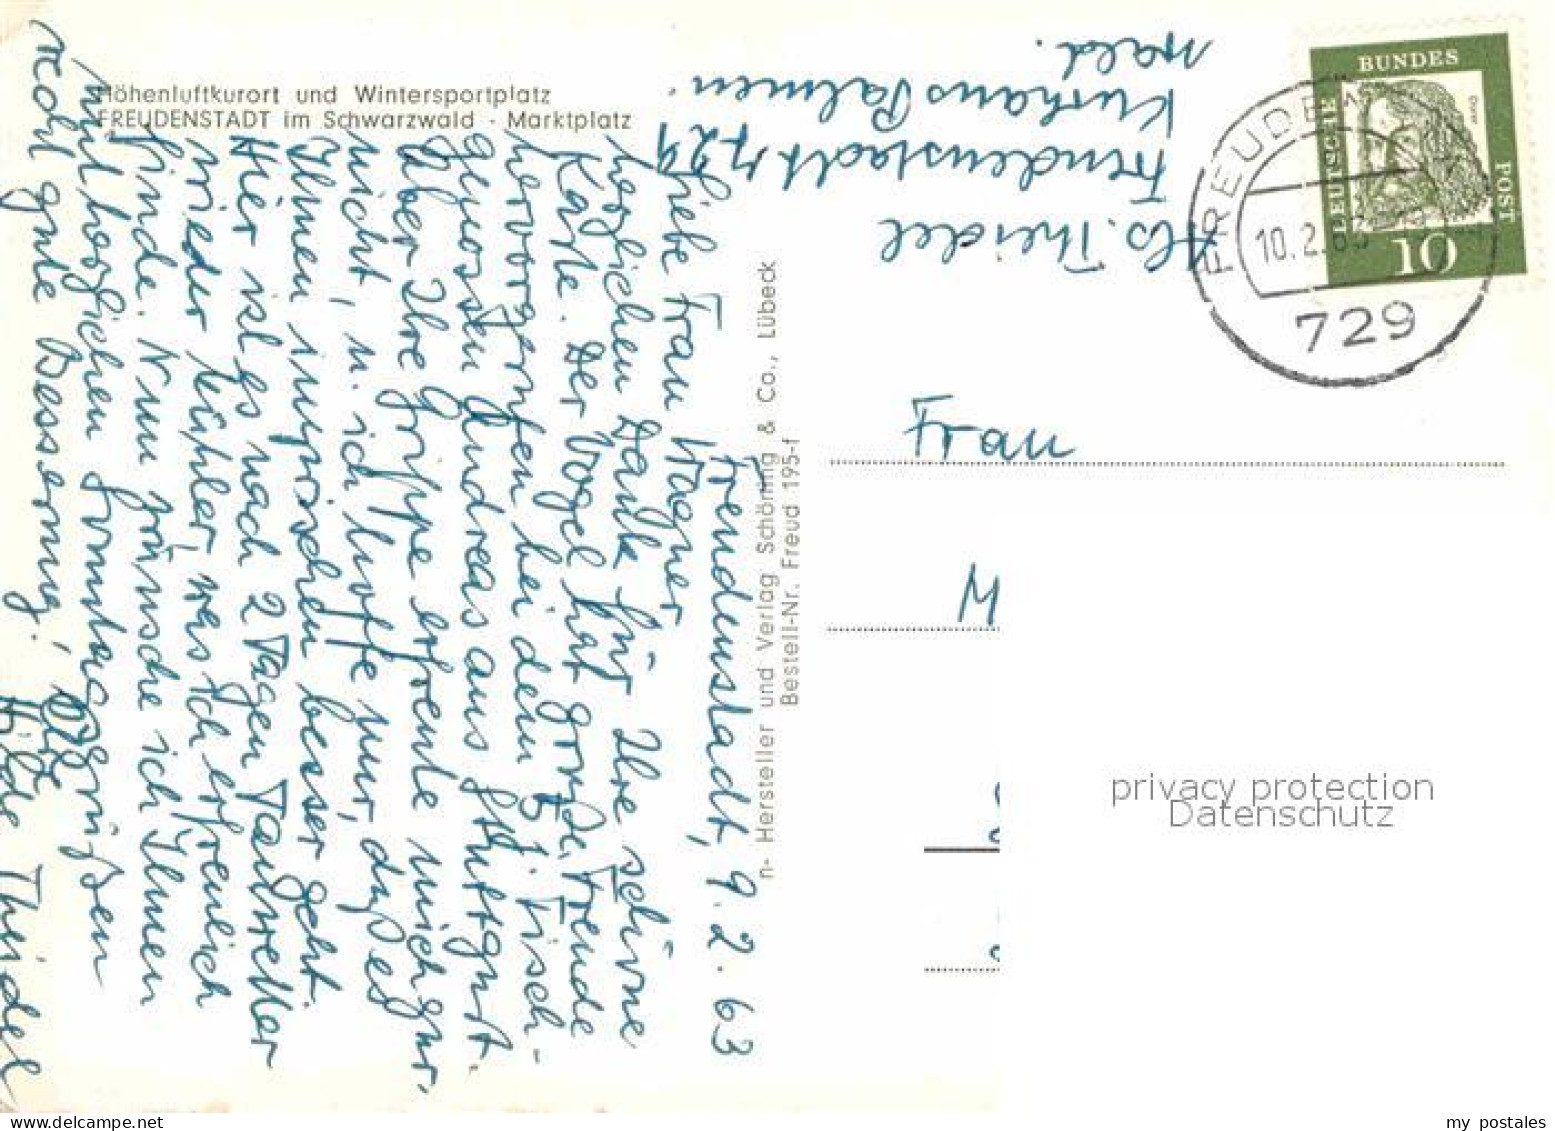 Höhenluftkurort und Wintersportplatz
FREUDENSTADT im Schwarzwald - Marktplatz
Freudenstadt, 9. 2. 63
Liebe Frau Wagner,
herzlichen Dank für Ihre schöne
Karte. Der Vogel hat große Freude
hervorgerufen bei dem Tisch-
genossen Andreas aus Stuttgart.
Aber Ihre Grippe erfreute mich gar
nicht, u. ich hoffe nur, daß es
Ihnen inzwischen besser geht.
Hier ist es nach 2 Tagen Tauwetter
wieder kühler, was ich erfreulich
finde. Nun wünsche ich Ihnen
mit herzlichen Sonntagsgrüßen
recht gute Besserung!
Ihre
Hilde Theidel
n- Hersteller und Verlag Schöning & Co., Lübeck
Bestell-Nr. Freud 195-f
Abs. Theidel
Freudenstadt 729
Kurhaus Palmen
wald.
DEUTSCHE
BUNDES
POST
Dürer
10
FREUDEN
10.2.63
729
Frau
M
privacy protection
Datenschutz
my postales